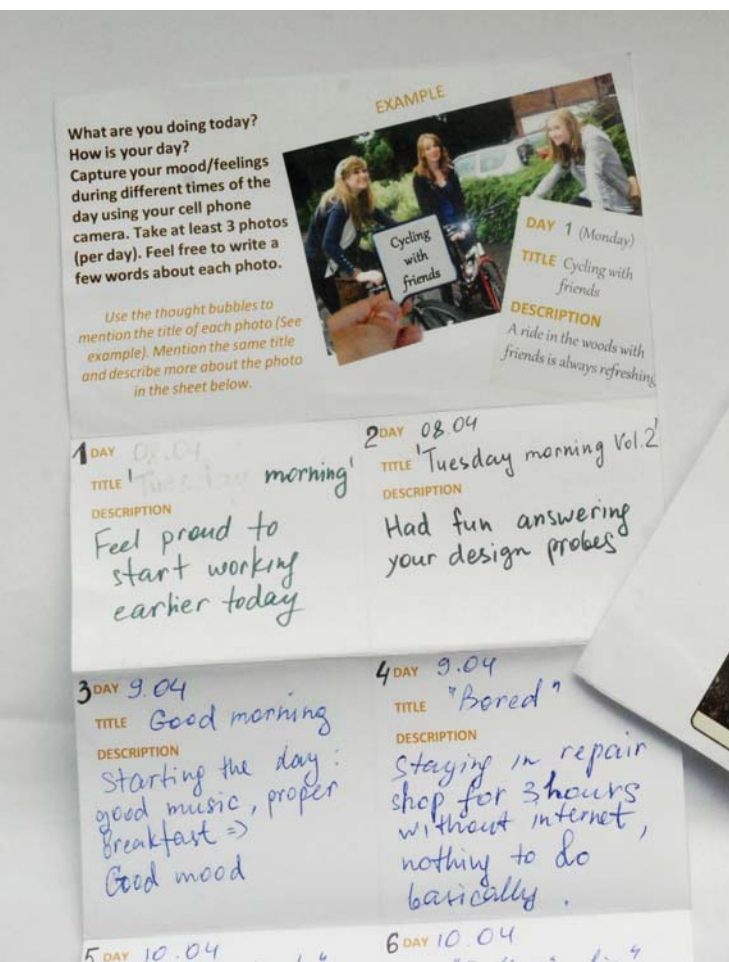 What are you doing today?
How is your day?
Capture your mood/feelings
during different times of the
day using your cell phone
camera. Take at least 3 photos
(per day). Feel free to write a
few words about each photo.
Use the thought bubbles to
mention the title of each photo (See
example). Mention the same title
and describe more about the photo
in the sheet below.
EXAMPLE
Cycling
with
friends
DAY 1 (Monday)
TITLE Cycling with
friends
DESCRIPTION
A ride in the woods with
friends is always refreshing
1 DAY 08.04
TITLE 'Tuesday morning'
DESCRIPTION
Feel proud to
start working
earlier today
2 DAY 08.04
TITLE 'Tuesday morning Vol.2'
DESCRIPTION
Had fun answering
your design probes
3 DAY 9.04
TITLE Good morning
DESCRIPTION
Starting the day:
good music, proper
Breakfast =>
Good mood
4 DAY 9.04
TITLE "Bored"
DESCRIPTION
Staying in repair
shop for 3 hours
without internet,
nothing to do
basically.
5 DAY 10.04
6 DAY 10.04